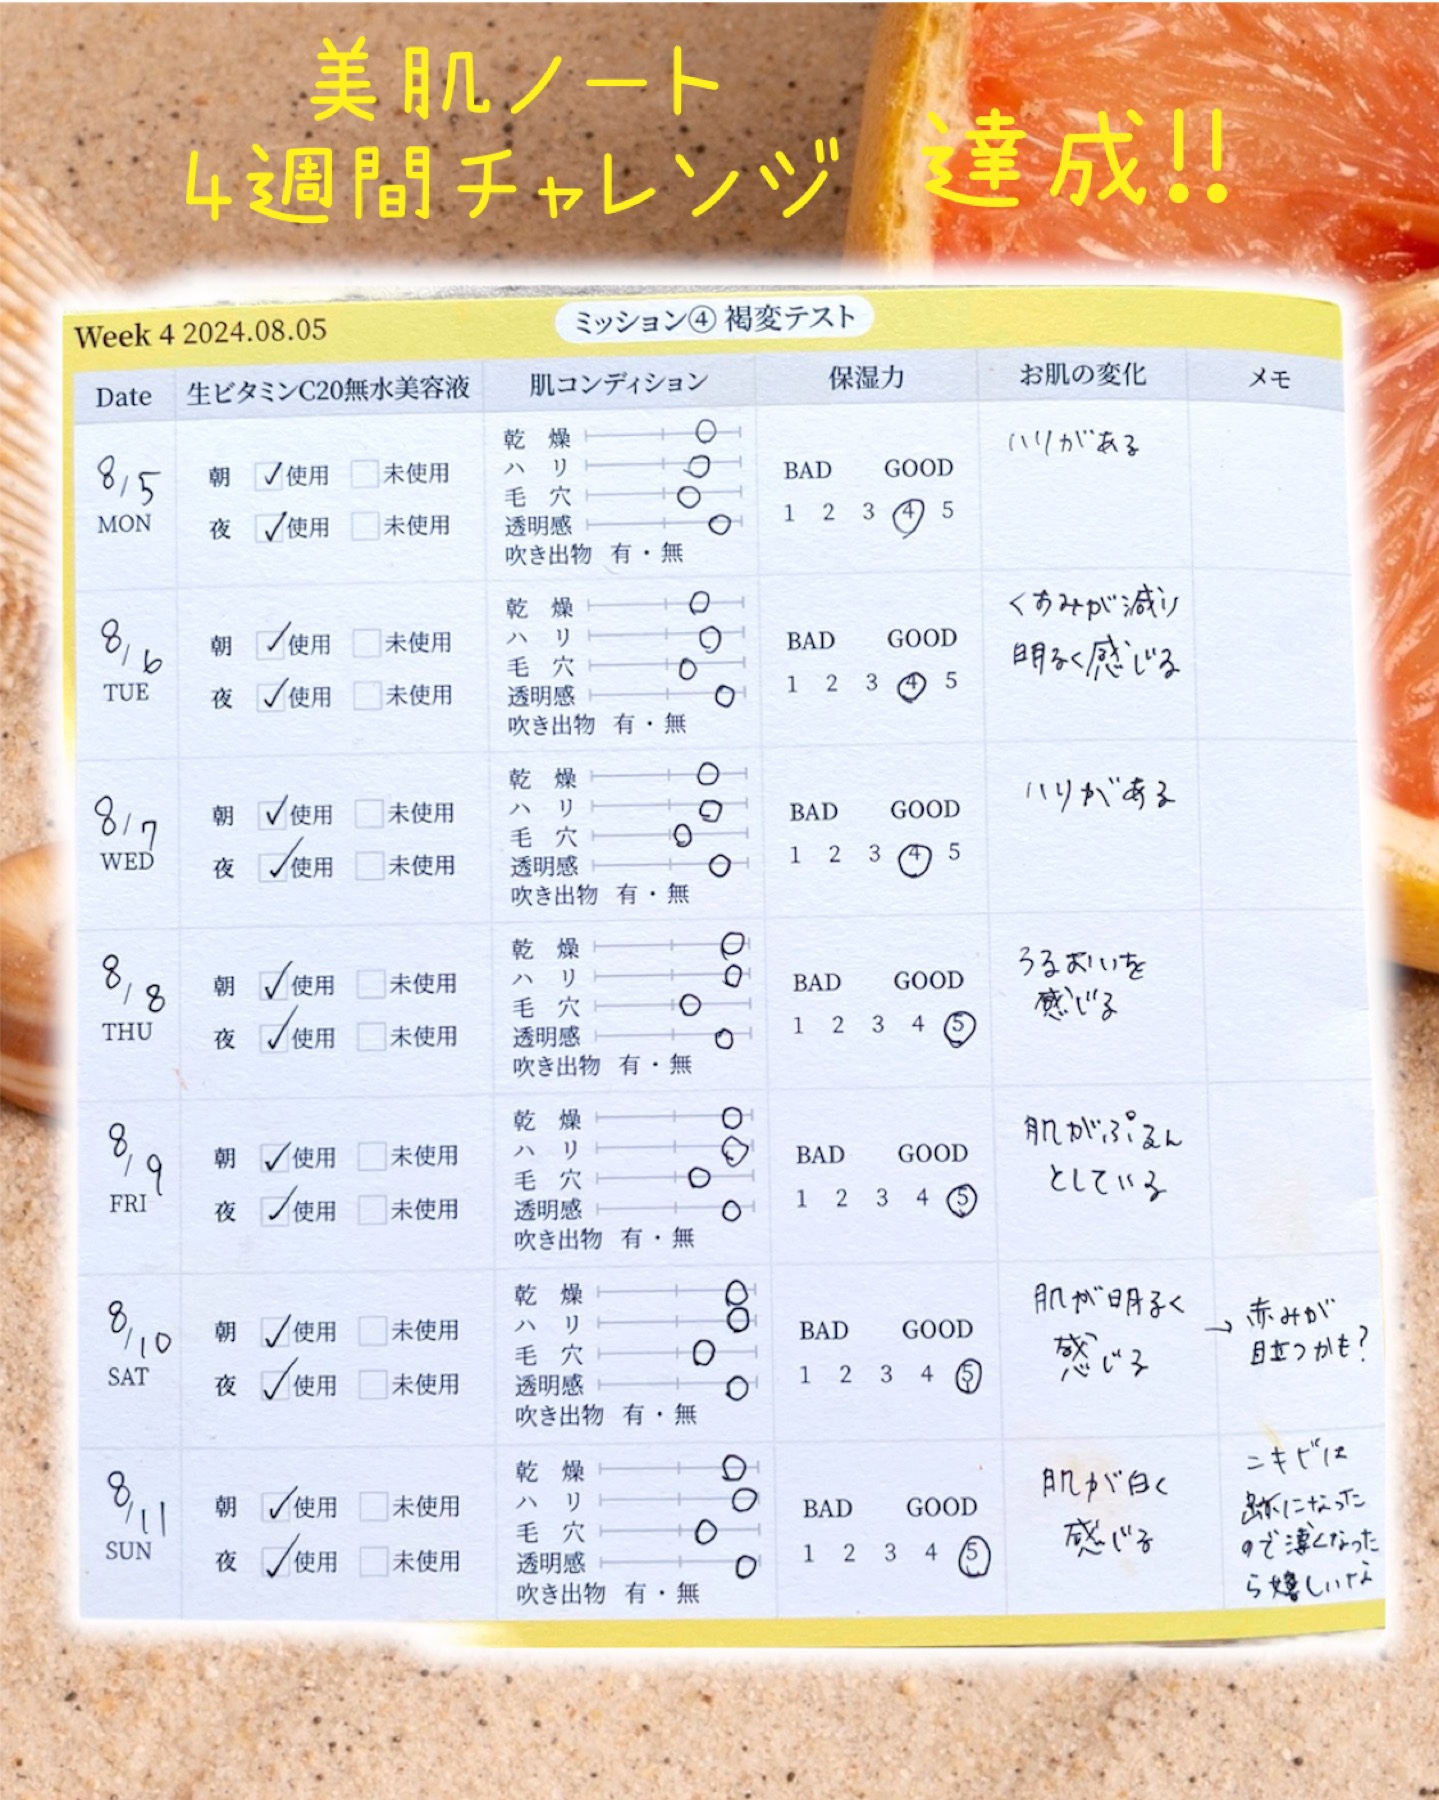 美肌ノート
4週間チャレンジ 達成!!
Week 4 2024.08.05 ミッション④ 褐変テスト
Date 生ビタミンC20無水美容液 肌コンディション 保湿力 お肌の変化 メモ
8/5
MON
朝 使用 未使用
夜 使用 未使用
乾燥
ハリ
毛穴
透明感
吹き出物 有・無
BAD GOOD
1 2 3 4 5
ハリがある
8/6
TUE
朝 使用 未使用
夜 使用 未使用
乾燥
ハリ
毛穴
透明感
吹き出物 有・無
BAD GOOD
1 2 3 4 5
くすみが減り
明るく感じる
8/7
WED
朝 使用 未使用
夜 使用 未使用
乾燥
ハリ
毛穴
透明感
吹き出物 有・無
BAD GOOD
1 2 3 4 5
ハリがある
8/8
THU
朝 使用 未使用
夜 使用 未使用
乾燥
ハリ
毛穴
透明感
吹き出物 有・無
BAD GOOD
1 2 3 4 5
うるおいを
感じる
8/9
FRI
朝 使用 未使用
夜 使用 未使用
乾燥
ハリ
毛穴
透明感
吹き出物 有・無
BAD GOOD
1 2 3 4 5
肌がぷるん
としている
8/10
SAT
朝 使用 未使用
夜 使用 未使用
乾燥
ハリ
毛穴
透明感
吹き出物 有・無
BAD GOOD
1 2 3 4 5
肌が明るく
感じる
→ 赤みが
目立つかも?
8/11
SUN
朝 使用 未使用
夜 使用 未使用
乾燥
ハリ
毛穴
透明感
吹き出物 有・無
BAD GOOD
1 2 3 4 5
肌が白く
感じる
ニキビは
跡になった
ので薄くなった
ら嬉しいな